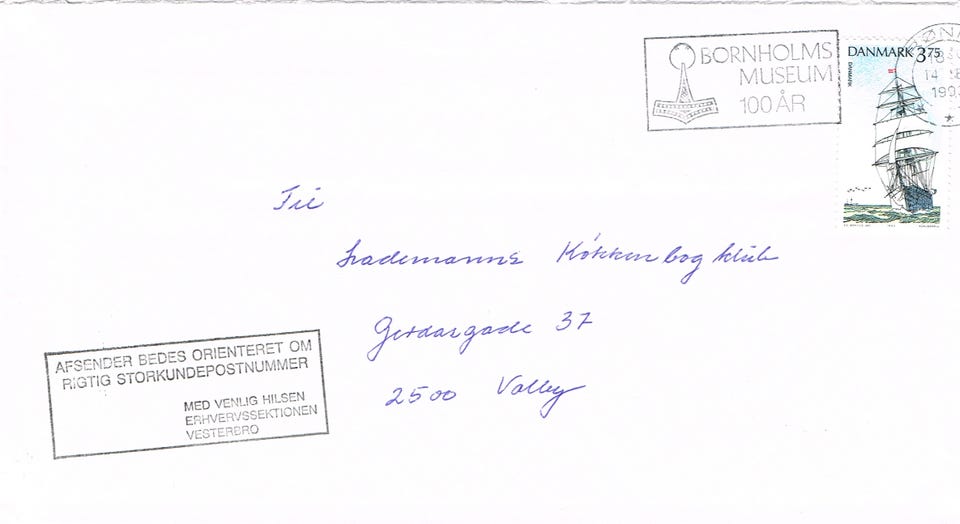 BORNHOLMS
MUSEUM
100 ÅR
DANMARK 3.75
DANMARK
14
199
Til
Lademanns Køkkenbog klub
Gerdasgade 37
2500 Valby
AFSENDER BEDES ORIENTERET OM
RIGTIG STORKUNDEPOSTNUMMER
MED VENLIG HILSEN
ERHVERVSSEKTIONEN
VESTERBRO